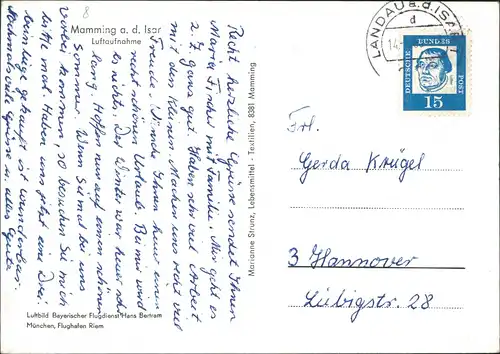 8
Mamming a. d. Isar
Luftaufnahme
Recht herzliche Grüsse sendet Ihnen
Maria Fischer mit Familie. Mir geht es
z. Z. ganz gut. Haben sehr viel Arbeit
mit den Kleinen. Machen uns recht viel
Freude. Wünsche Ihnen heuer einen
recht schönen Urlaub. Bei mir wird
es nichts. Der Winter war heuer sehr
lang. Hoffen nun auf einen schönen
Sommer. Wenn Sie mal bei uns
vorbei kommen, so besuchen Sie mich
bitte mal. Haben uns jetzt eine
gekauft ist wunderbar.
Nochmals viele Grüsse u. alles Gute
Luftbild Bayerischer Flugdienst Hans Bertram
München, Flughafen Riem
Marianne Strunz, Lebensmittel - Textilien, 8381 Mamming
LANDAU a. d. ISAR
d
14.
DEUTSCHE BUNDESPOST
15
Frl.
Gerda Krügel
3 Hannover
Lübigstr. 28